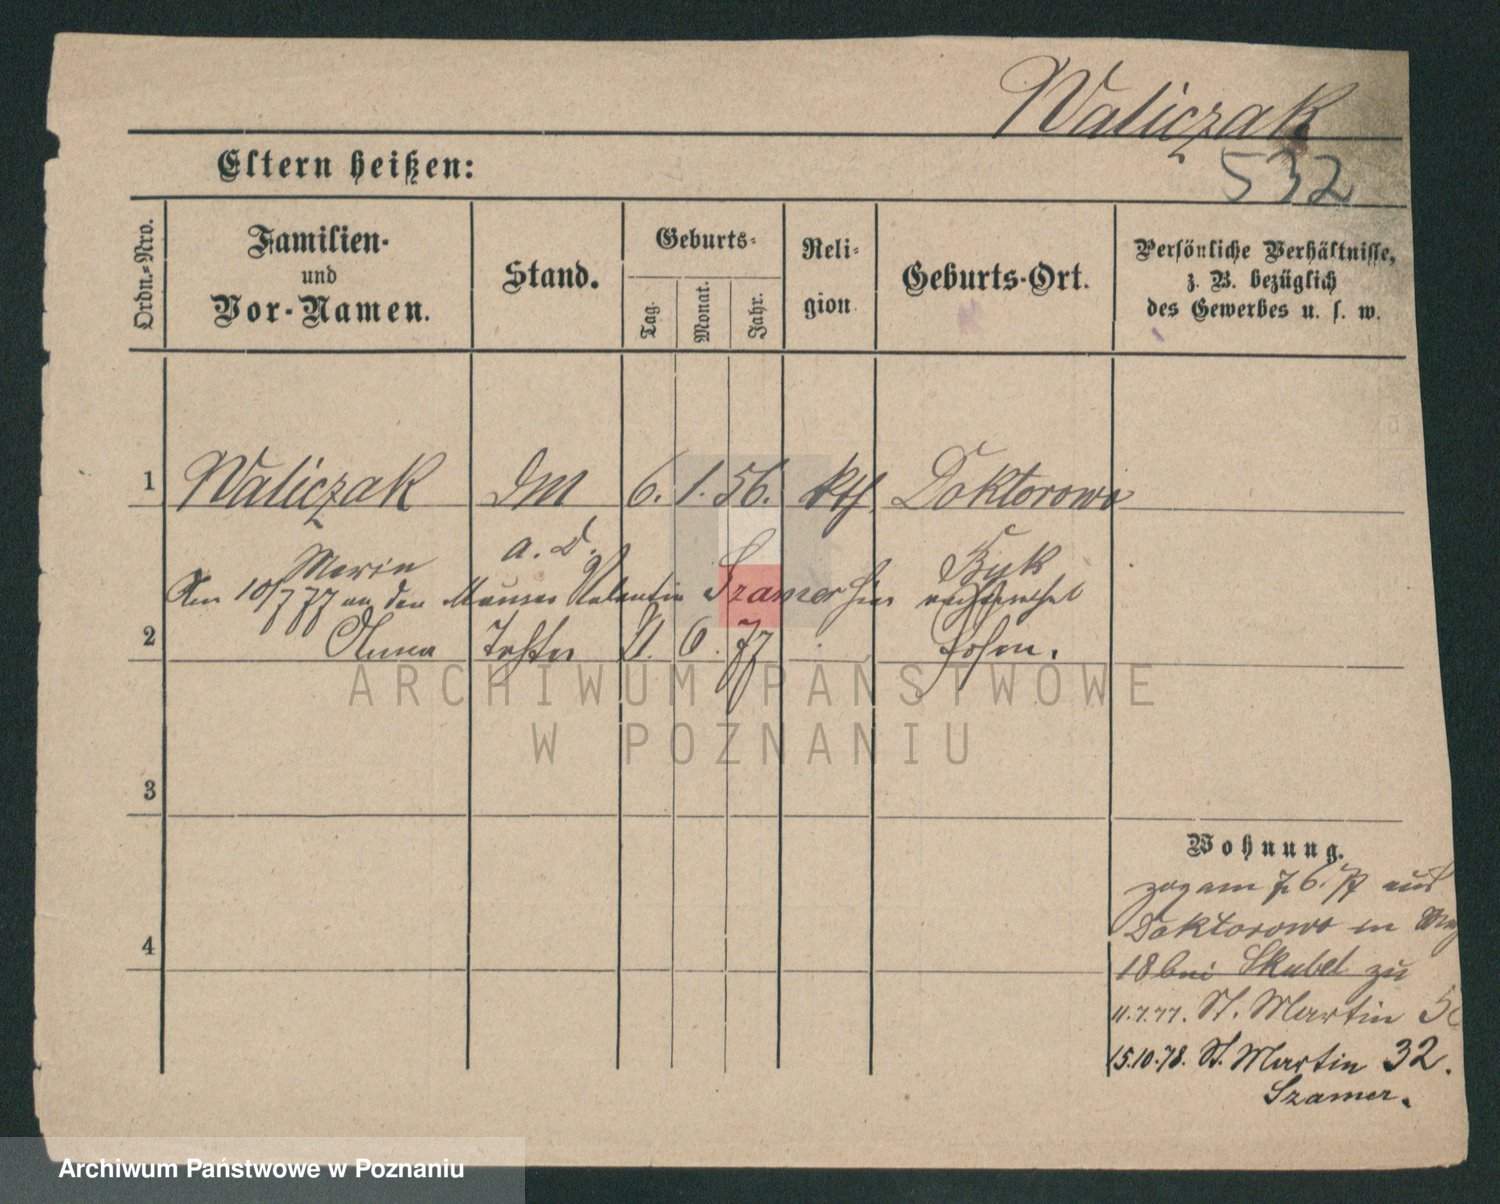 Waliczak
532
Eltern heißen:
Ordn.-Nro.
Familien-
und
Vor-Namen.
Stand.
Geburts-
Tag.
Monat.
Jahr.
Reli-
gion.
Geburts-Ort.
Persönliche Verhältnisse,
z. B. bezüglich
des Gewerbes u. s. w.
1 Waliczak DM 6. 1. 56. kth Doktorowo
Marie a. D. Buk
Am 10/7 77 an den Maurer Valentin Szamer hier verheirathet
2 Anna Tochter 11. 6. 77 Posen.
3
4
Wohnung.
zog am 7. 6. 77 aus
Doktorowo in
18 bei Skubel zu
11.7.77. St. Martin
15.10.78. St. Martin 32.
Szamer.
ARCHIWUM PAŃSTWOWE
W POZNANIU
Archiwum Państwowe w Poznaniu